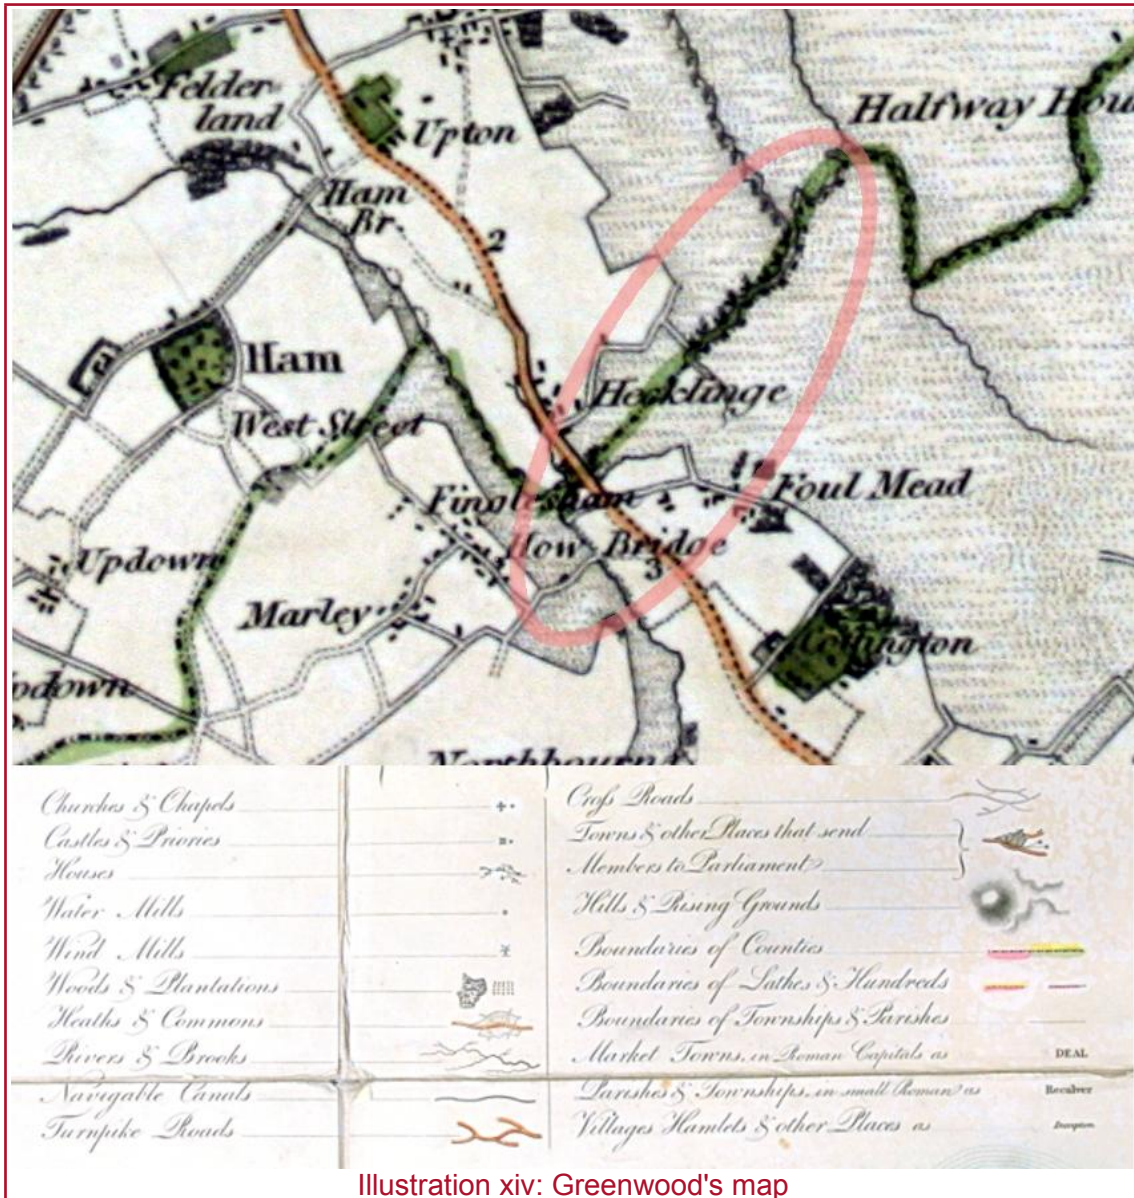 Halfway Hou
Felder
land
Upton
Ham
Br
2
Ham
Hecklinge
West Street
Finglesham
Foul Mead
How Bridge
3
Updown
Marley
Cottington
pdown
Northbourn
Churches & Chapels
Castles & Priories
Houses
Water Mills
Wind Mills
Woods & Plantations
Heaths & Commons
Rivers & Brooks
Navigable Canals
Turnpike Roads
Cross Roads
Towns & other Places that send
Members to Parliament
Hills & Rising Grounds
Boundaries of Counties
Boundaries of Lathes & Hundreds
Boundaries of Townships & Parishes
Market Towns, in Roman Capitals as DEAL
Parishes & Townships, in small Roman as Reculver
Villages Hamlets & other Places as
Illustration xiv: Greenwood's map